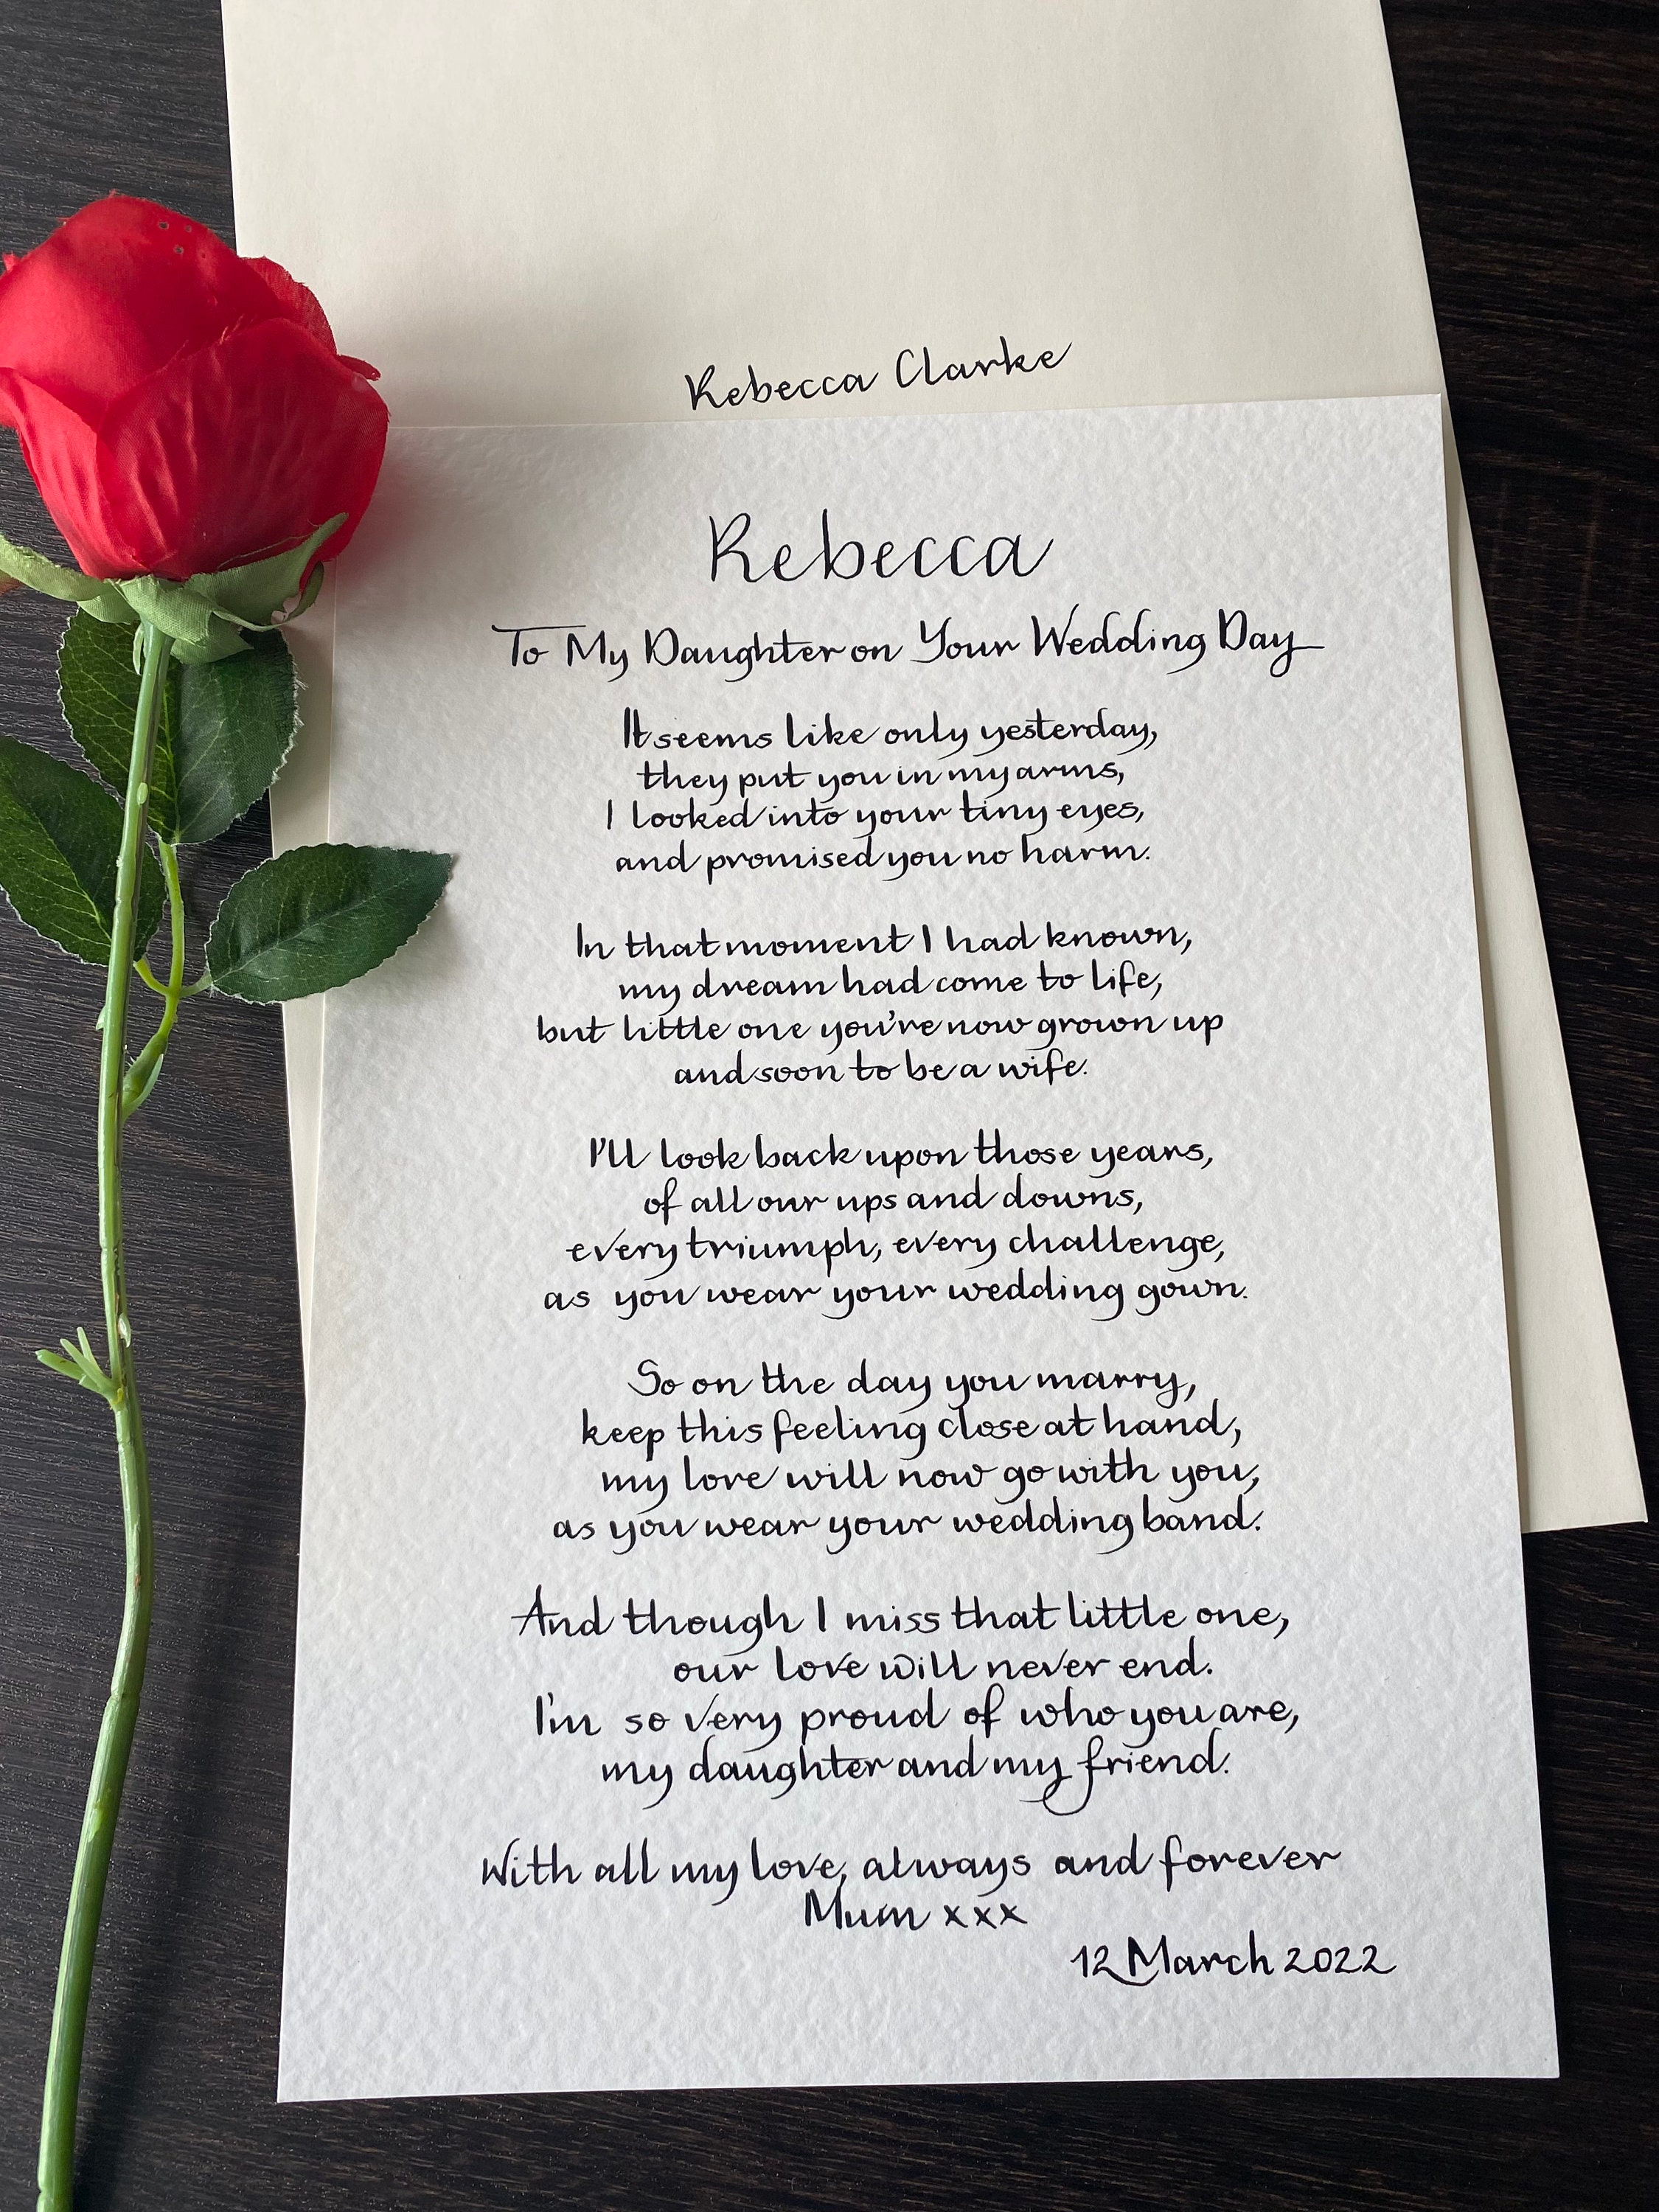 Rebecca Clarke
Rebecca
To My Daughter on Your Wedding Day
It seems like only yesterday,
they put you in my arms,
I looked into your tiny eyes,
and promised you no harm.
In that moment I had known,
my dream had come to life,
but little one you're now grown up
and soon to be a wife.
I'll look back upon those years,
of all our ups and downs,
every triumph, every challenge,
as you wear your wedding gown.
So on the day you marry,
keep this feeling close at hand,
my love will now go with you,
as you wear your wedding band.
And though I miss that little one,
our love will never end.
I'm so very proud of who you are,
my daughter and my friend.
With all my love, always and forever
Mum xxx
12 March 2022